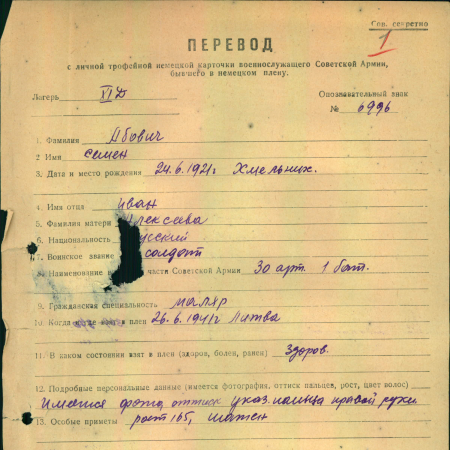 Сов. секретно
1
ПЕРЕВОД
с личной трофейной немецкой карточки военнослужащего Советской Армии,
бывшего в немецком плену.
Лагерь XI D Опознавательный знак
№ 6996
1. Фамилия Абович
2 Имя Семен
3. Дата и место рождения 24.6.1921г Хмельник.
4. Имя отца Иван
5. Фамилия матери Алексева
6. Национальность русский
7. Воинское звание солдат
8. Наименование части Советской Армии 30 арт. 1 бат.
9. Гражданская специальность маляр
10. Когда взят в плен 26.6.1941г Литва
11. В каком состоянии взят в плен (здоров, болен, ранен) Здоров.
12. Подробные персональные данные (имеется фотография, оттиск пальцев, рост, цвет волос)
Имеется фото, оттиск указ. пальца правой руки
13. Особые приметы рост 165,